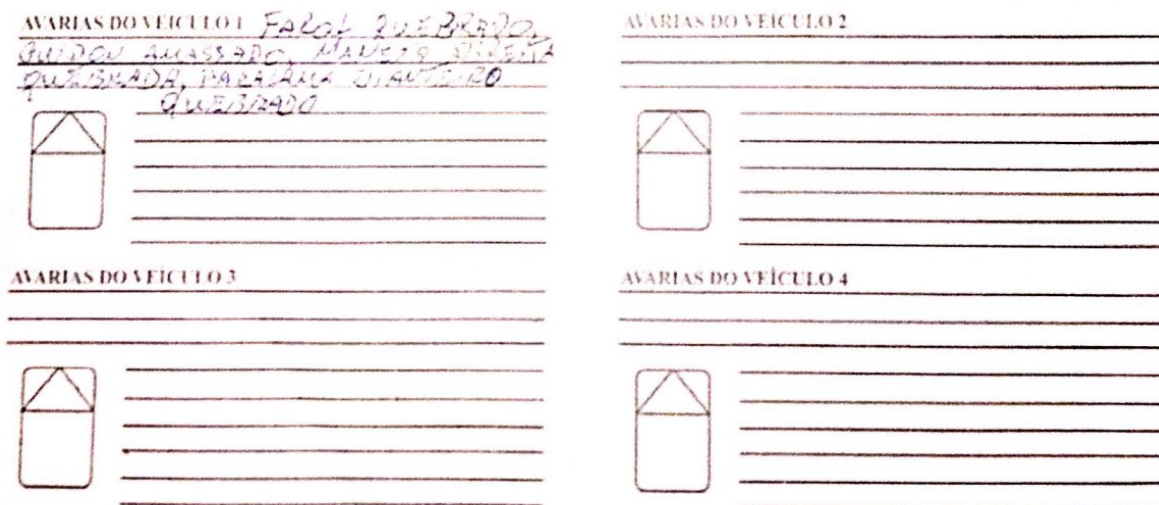 AVARIAS DO VEÍCULO 1 FAROL QUEBRADO,
GUIDON AMASSADO, MANETE DIREITA
QUEBRADA, PARALAMA DIANTEIRO
QUEBRADO
AVARIAS DO VEÍCULO 2
AVARIAS DO VEÍCULO 3
AVARIAS DO VEÍCULO 4